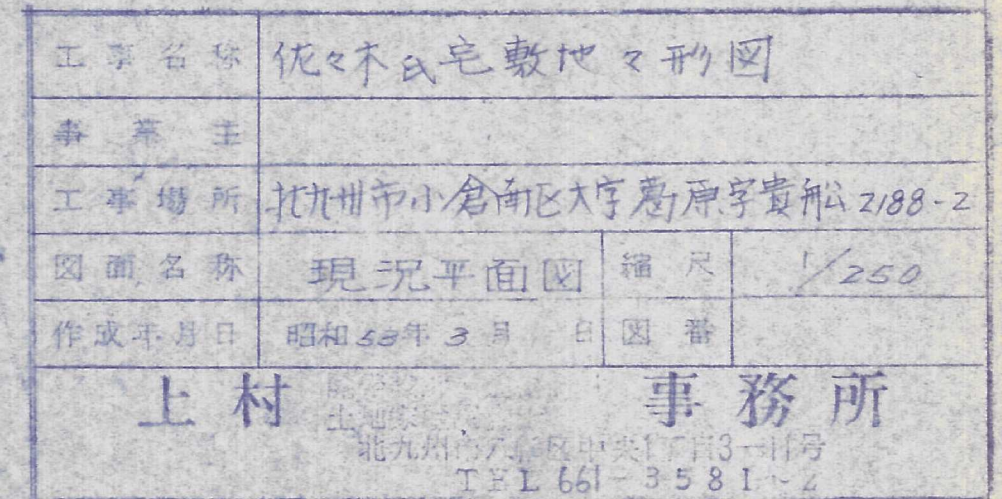 工事名称 佐々木氏宅敷地々形図
事業主
工事場所 北九州市小倉南区大字葛原字貴船2188-2
図面名称 現況平面図 縮尺 1/250
作成年月日 昭和53年3月 日 図番
上村 事務所
北九州市八幡区中央1丁目3-11号
TEL 661-3581~2